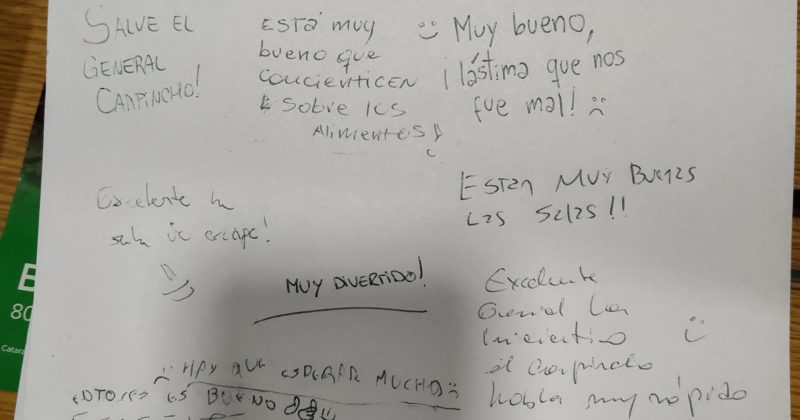 SALVE EL
GENERAL
CARPINCHO!
ESTÁ MUY
bueno que
concienticen
sobre los
Alimentos!
Muy bueno,
¡lástima que nos
fue mal!
ESTAN MUY BUENAS
LAS SALAS!!
Excelente la
sala de escape!
MUY DIVERTIDO!
Excelente
Genial la
iniciativa
el carpincho
habla muy rápido
HAY QUE ESPERAR MUCHO
ES BUENO
80
Catara